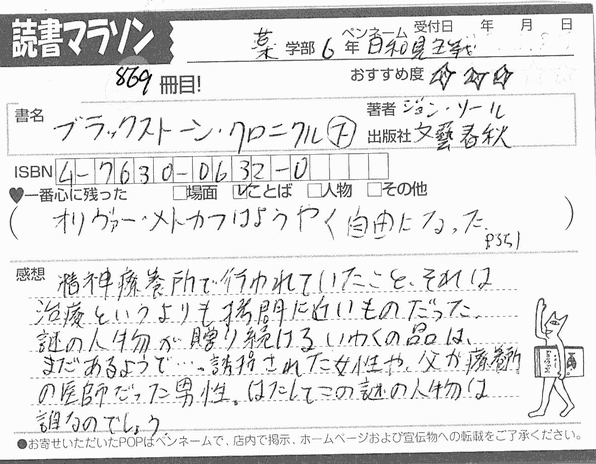 読書マラソン
受付日　年　月　日
薬 学部 6 年 ペンネーム 日和見主義
869 冊目!
おすすめ度 ☆☆☆
書名 ブラックストーン・クロニクル(下)
著者 ジョン・ソール
出版社 文藝春秋
ISBN 4-7630-0632-0
♥一番心に残った □場面 ☑ことば □人物 □その他
(オリヴァー・メトカフはようやく自由になった P351)
感想 精神療養所で行われていたこと、それは
治療というよりも拷問に近いものだった。
謎の人物が贈り続けるいわくの品は、
まだあるようで…。誘拐された女性や、父が療養所
の医師だった男性。はたしてこの謎の人物は
誰なのでしょう
●お寄せいただいたPOPはペンネームで、店内で掲示、ホームページおよび宣伝物への転載をご了承ください。